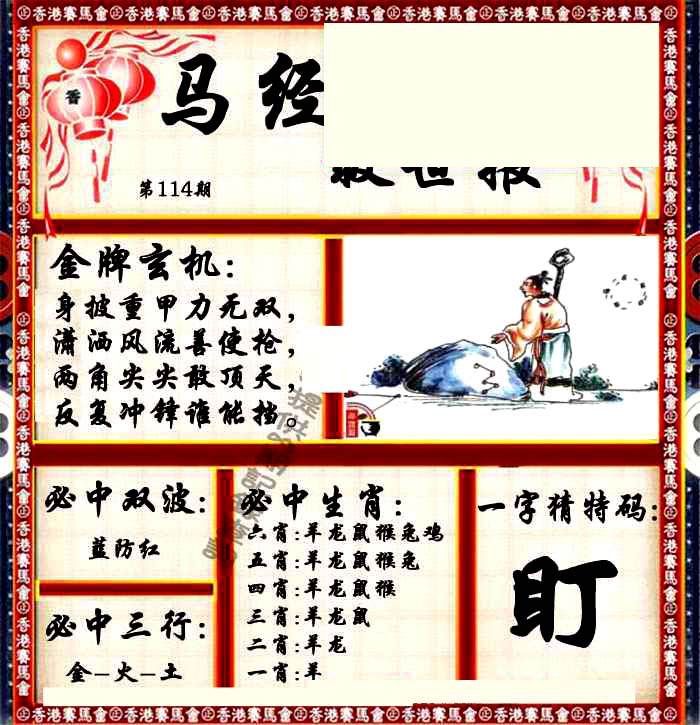 香港賽馬會㊣香港賽馬會㊣香港賽馬會㊣香港賽馬會㊣香港賽馬會
香
马经
报
第114期
金牌玄机:
身披重甲力无双,
潇洒风流善使枪,
两角尖尖敢顶天,
反复冲锋谁能挡。
必中双波:
蓝防红
必中三行:
金-火-土
必中生肖:
六肖:羊龙鼠猴兔鸡
五肖:羊龙鼠猴兔
四肖:羊龙鼠猴
三肖:羊龙鼠
二肖:羊龙
一肖:羊
一字猜特码:
盯
香港賽馬會㊣香港賽馬會㊣香港賽馬會㊣香港賽馬會㊣香港賽馬會